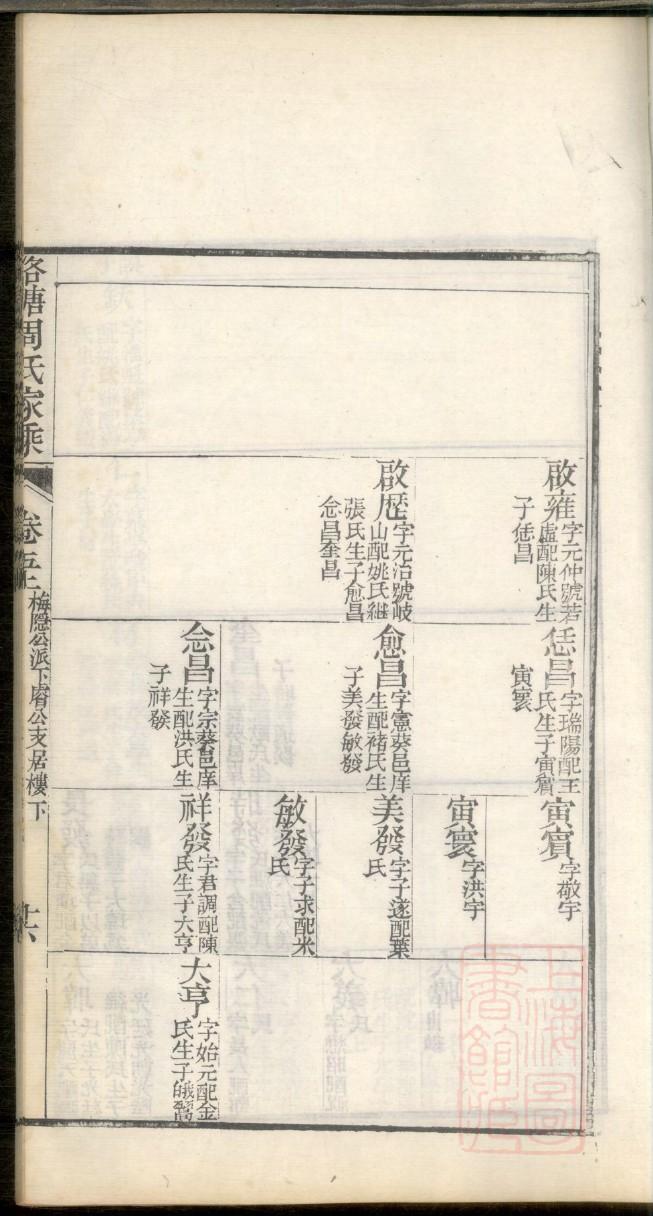 啟雍
字元仲號若
虛配陳氏生
子恁昌
啟歷
字元治號岐
山配姚氏繼
張氏生子愈昌
念昌奎昌
恁昌
字瑞陽配王
氏生子寅賓
寅寰
愈昌
字憲葵邑庠
生配褚氏生
子美發敏發
念昌
字宗葵邑庠
生配洪氏生
子祥發
寅賓
字敬宇
寅寰
字洪宇
美發
字子遂配葉
氏
敏發
字子求配米
氏
祥發
字君調配陳
氏生子大亨
大亨
字始元配金
氏生子
洛塘周氏家乘
卷五
梅隱公派下睿公支居樓下
十六
上海圖書館藏